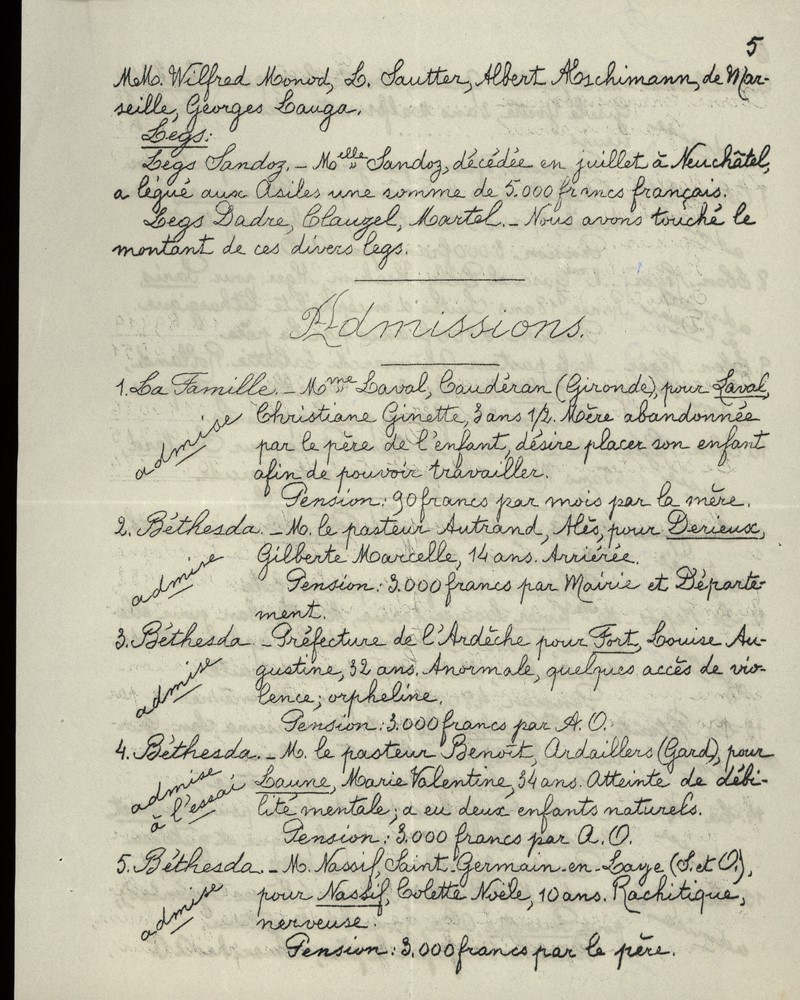 5
MM. Wilfred Monod, L. Sautter, Albert Æschimann, de Mar-
seille, Georges Lauga.
Legs:
Legs Sandoz. – Melle Sandoz, décédée en juillet à Neuchâtel,
a légué aux Asiles une somme de 5.000 francs français.
Legs Dadre, Clauzel, Martel. – Nous avons touché le
montant de ces divers legs.
Admissions.
1. La Famille. – Mme Laval, Caudéran (Gironde), pour Laval,
admise Christiane Ginette, 3 ans 1/2. Mère abandonnée
par le père de l'enfant, désire placer son enfant
afin de pouvoir travailler.
Pension: 90 francs par mois par la mère.
2. Béthesda. – M. le pasteur Autrand, Alès, pour Derieux,
admise Gilberte Marcelle, 14 ans. Arriérée.
Pension: 3.000 francs par Mairie et Départe-
ment.
3. Béthesda. – Préfecture de l'Ardèche pour Fort, Louise Au-
admise gustine, 32 ans. Anormale, quelques accès de vio-
lence; orpheline.
Pension: 3.000 francs par A. O.
4. Béthesda. – M. le pasteur Benoît, Ardaillers (Gard), pour
admise Laune, Marie Valentine, 34 ans. Atteinte de débi-
à l'essai lité mentale; a eu deux enfants naturels.
Pension: 3.000 francs par A. O.
5. Béthesda. – M. Nassif, Saint-Germain-en-Laye (S. et O.),
admise pour Nassif, Colette Noële, 10 ans. Rachitique,
nerveuse.
Pension: 3.000 francs par le père.